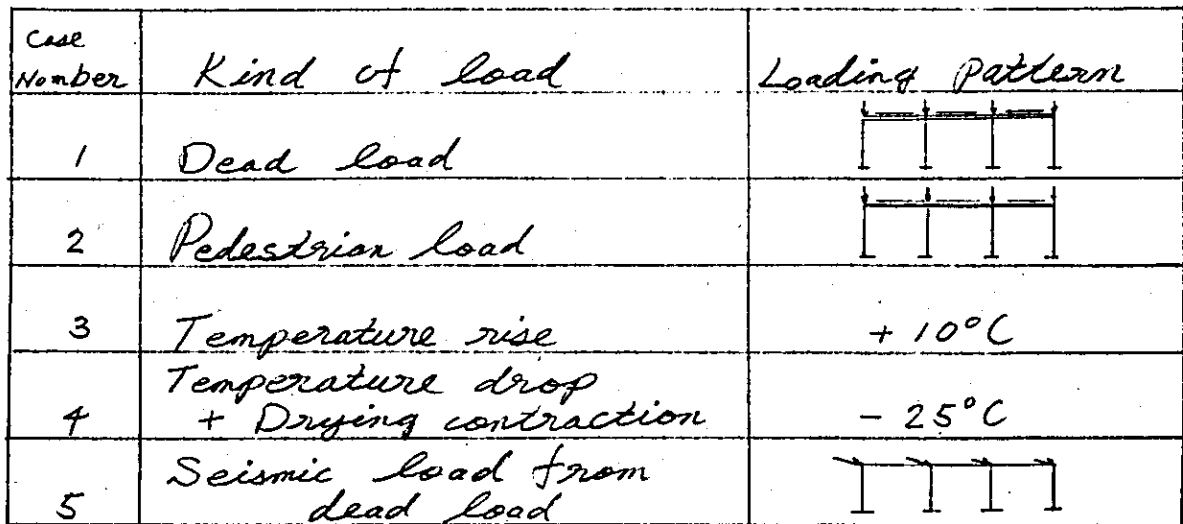 Case
Number Kind of load Loading Pattern
1 Dead load
2 Pedestrian load
3 Temperature rise + 10°C
Temperature drop
4 + Drying contraction - 25°C
Seismic load from
5 dead load